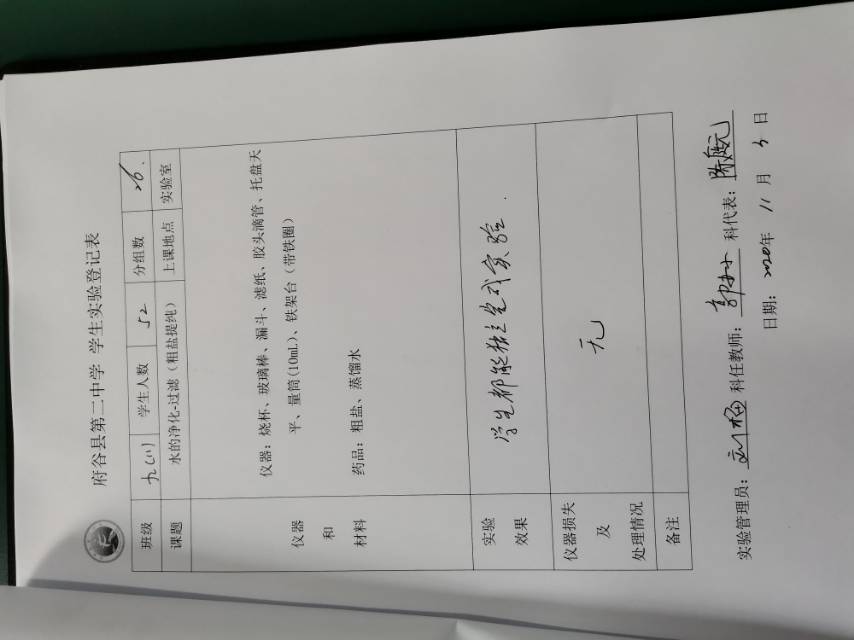 府谷县第二中学 学生实验登记表
班级 九(1) 学生人数 52 分组数 26.
课题 水的净化-过滤（粗盐提纯） 上课地点 实验室
仪器和材料
仪器：烧杯、玻璃棒、漏斗、滤纸、胶头滴管、托盘天
平、量筒(10mL)、铁架台（带铁圈）
药品：粗盐、蒸馏水
实验效果 学生都能独立完成实验.
仪器损失及处理情况 无
备注
实验管理员： 科任教师： 科代表：
日期： 2020年 11 月 3 日